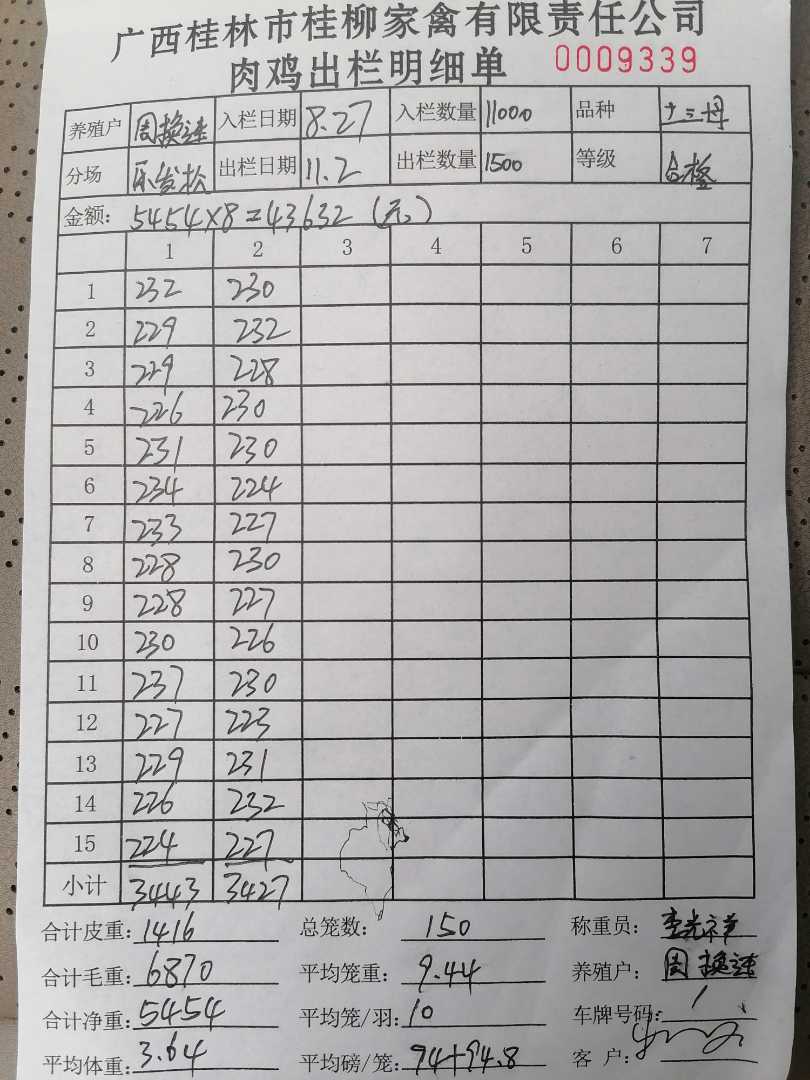 广西桂林市桂柳家禽有限责任公司
肉鸡出栏明细单 0009339
养殖户 周换连 入栏日期 8.27 入栏数量 11000 品种 十三丹
分场 乐发松 出栏日期 11.2 出栏数量 1500 等级 合格
金额: 5454×8=43632(元)
1 2 3 4 5 6 7
1 232 230
2 229 232
3 229 228
4 226 230
5 231 230
6 234 224
7 233 227
8 228 230
9 228 227
10 230 226
11 237 230
12 227 223
13 229 231
14 226 232
15 224 227
小计 3443 3427
合计皮重: 1416 总笼数: 150 称重员: 李光祥
合计毛重: 6870 平均笼重: 9.44 养殖户: 周换连
合计净重: 5454 平均笼/羽: 10 车牌号码: /
平均体重: 3.64 平均磅/笼: 94+94.8 客户: